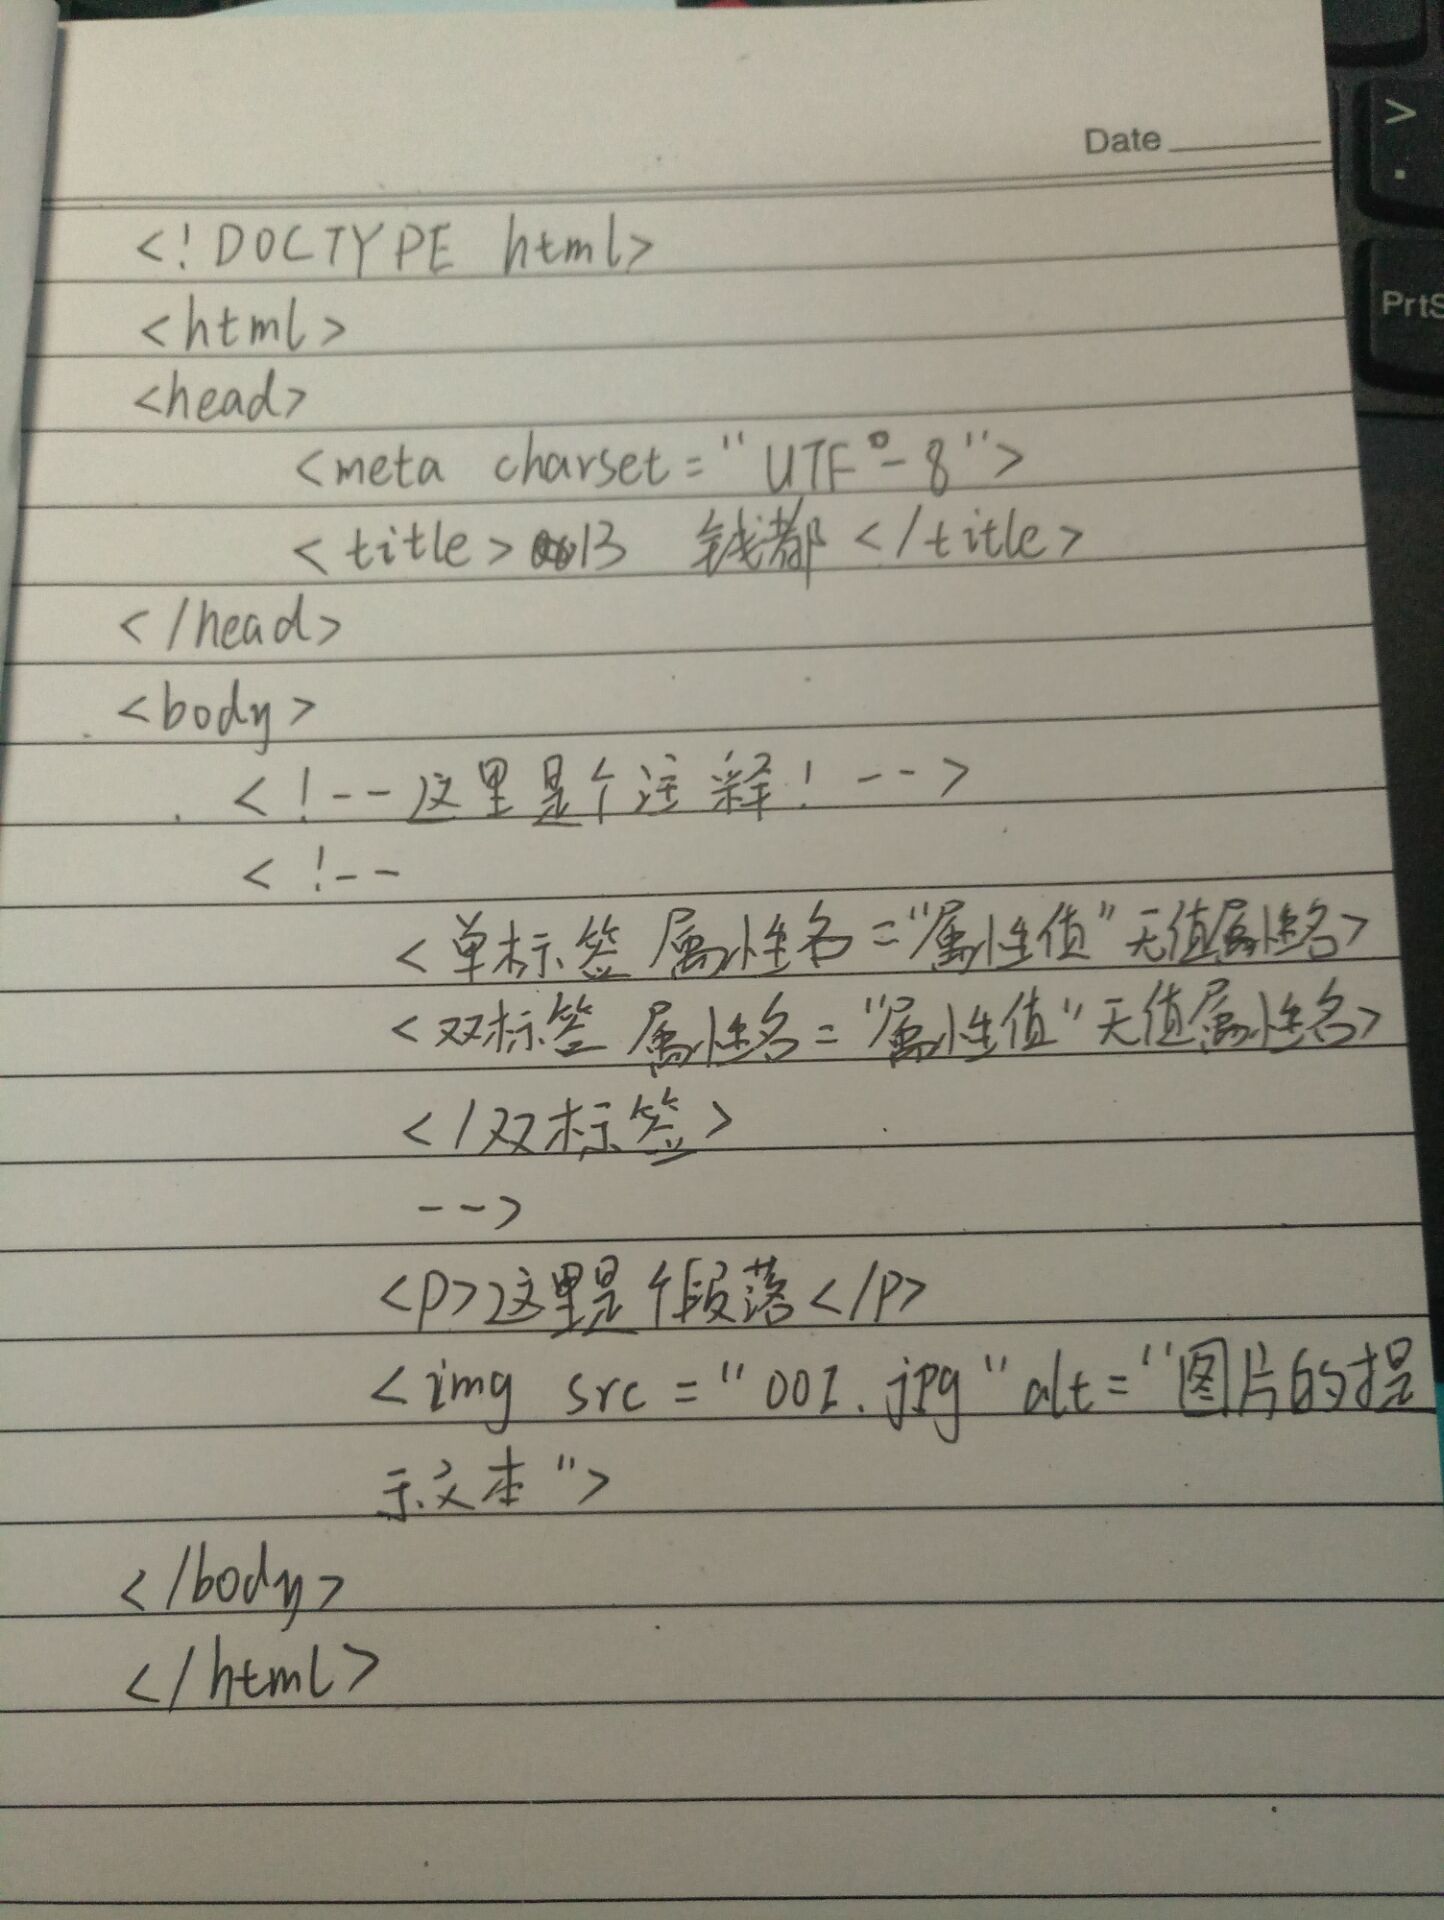 Date
<!DOCTYPE html>
<html>
<head>
<meta charset="UTF-8">
<title>13 钱都</title>
</head>
<body>
<!--这里是个注释!-->
<!--
<单标签 属性名="属性值"无值属性名>
<双标签 属性名="属性值"无值属性名>
</双标签>
-->
<p>这里是个段落</p>
<img src="001.jpg"alt="图片的提
示文本">
</body>
</html>
>
.
PrtS